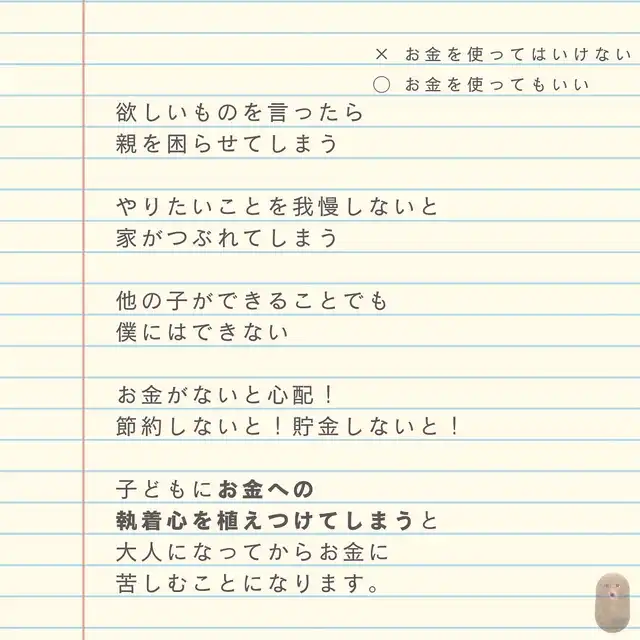 × お金を使ってはいけない
○ お金を使ってもいい
欲しいものを言ったら
親を困らせてしまう
やりたいことを我慢しないと
家がつぶれてしまう
他の子ができることでも
僕にはできない
お金がないと心配！
節約しないと！貯金しないと！
子どもにお金への
執着心を植えつけてしまうと
大人になってからお金に
苦しむことになります。